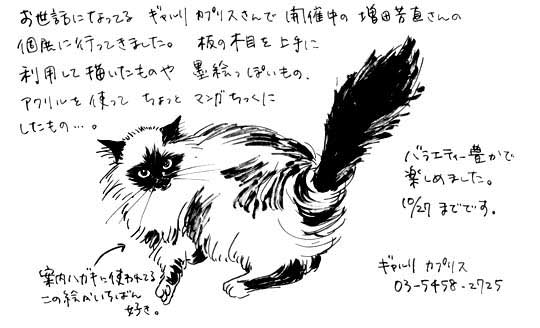 お世話になってる ギャルリ カプリスさんで 開催中の 増田芳直さんの
個展に行ってきました。 板の木目を上手に
利用して描いたものや 墨絵っぽいもの、
アクリルを使って ちょっと マンガちっくに
したもの…。
バラエティー豊かで
楽しめました。
10/27 までです。
案内ハガキに使われてる
この絵がいちばん
好き。
ギャルリ カプリス
03-5458-2725